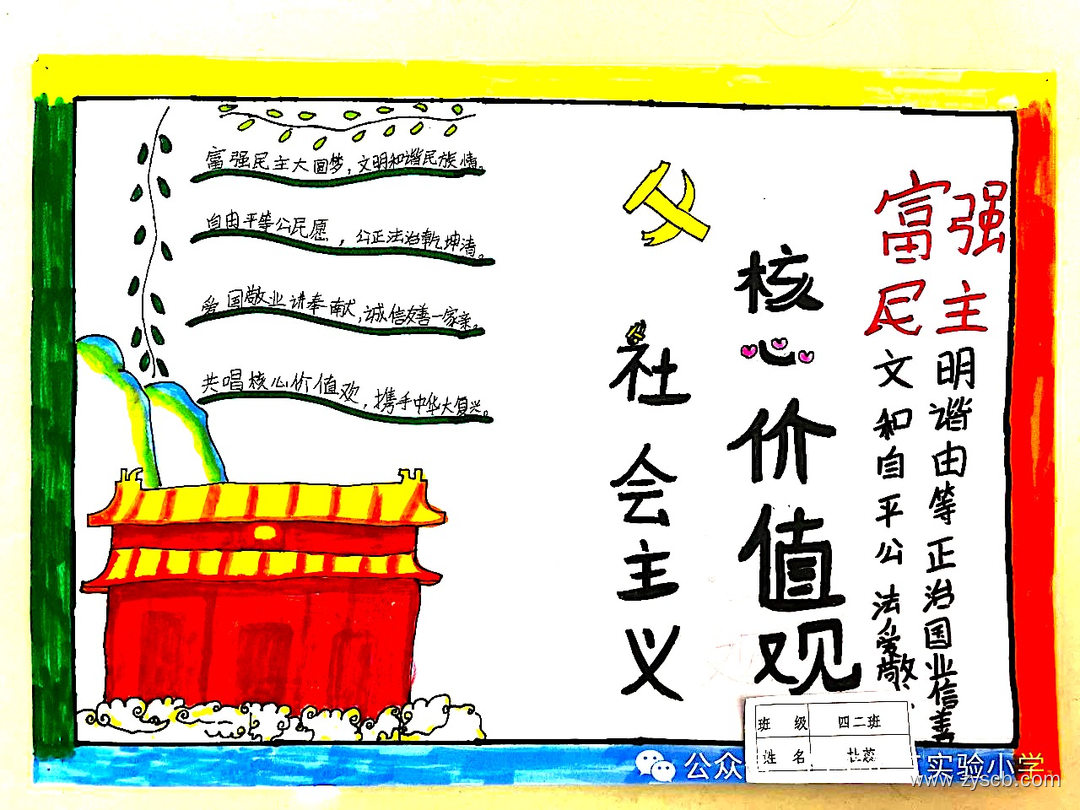 富强民主大国梦,文明和谐民族情。
自由平等公民愿,公正法治乾坤清。
爱国敬业讲奉献,诚信友善一家亲。
共唱核心价值观,携手中华大复兴。
社会主义
核心价值观
富强
民主
文明
和谐
自由
平等
公正
法治
爱国
敬业
信
善
班级 四二班
姓名
公众
实验小学
www.zyscb.com